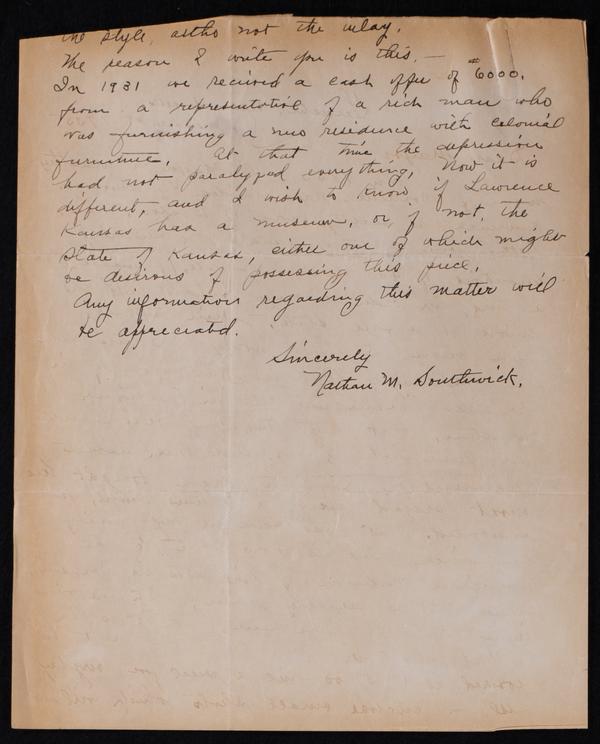 the style, altho not the inlay.
The reason I write you is this, —
In 1931 we received a cash offer of $6000.
from a representative of a rich man who
was furnishing a new residence with colonial
furniture. At that time the depression
had not paralyzed everything, Now it is
different, and I wish to know if Lawrence
Kansas has a museum, or, if not, the
State of Kansas, either one of which might
be desirous of possessing this piece.
Any information regarding this matter will
be appreciated.
Sincerely
Nathan M. Southwick.